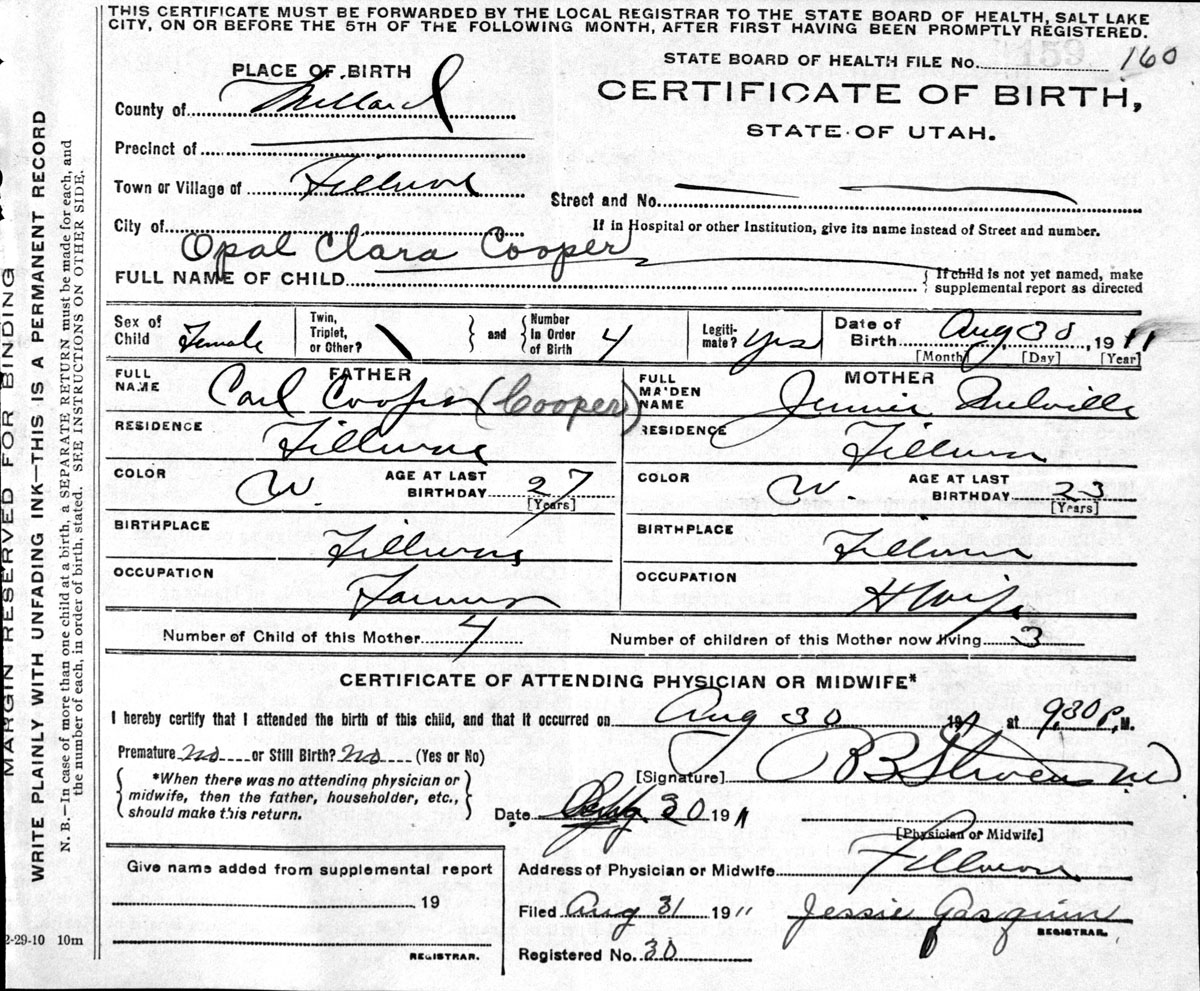 THIS CERTIFICATE MUST BE FORWARDED BY THE LOCAL REGISTRAR TO THE STATE BOARD OF HEALTH, SALT LAKE
CITY, ON OR BEFORE THE 5TH OF THE FOLLOWING MONTH, AFTER FIRST HAVING BEEN PROMPTLY REGISTERED.
STATE BOARD OF HEALTH FILE No. 159 160
CERTIFICATE OF BIRTH,
STATE OF UTAH.
PLACE OF BIRTH
County of Millard
Precinct of
Town or Village of Fillmore
Street and No.
City of
If in Hospital or other Institution, give its name instead of Street and number.
Opal Clara Cooper
FULL NAME OF CHILD
{ If child is not yet named, make
supplemental report as directed
Sex of Child Female
Twin, Triplet, or Other?
and
Number In Order of Birth 4
Legiti-mate? Yes
Date of Birth Aug 30, 1911
[Month] [Day] [Year]
FATHER
FULL NAME Carl Cooper (Cooper)
MOTHER
FULL MAIDEN NAME Jennie Melville
RESIDENCE Fillmore
RESIDENCE Fillmore
COLOR W. AGE AT LAST BIRTHDAY 27 [Years]
COLOR W. AGE AT LAST BIRTHDAY 23 [Years]
BIRTHPLACE Fillmore
BIRTHPLACE Fillmore
OCCUPATION Farmer
OCCUPATION H Wife
Number of Child of this Mother 4
Number of children of this Mother now living 3
CERTIFICATE OF ATTENDING PHYSICIAN OR MIDWIFE*
I hereby certify that I attended the birth of this child, and that it occurred on Aug 30 1911 at 9,30 P, M.
Premature No or Still Birth? No (Yes or No)
{ *When there was no attending physician or
midwife, then the father, householder, etc.,
should make this return. }
[Signature] Stevens MD
Date 30 1911
[Physician or Midwife]
Address of Physician or Midwife Fillmore
Give name added from supplemental report
19
REGISTRAR.
Filed Aug 31 1911 Jessie
REGISTRAR.
Registered No. 30
2-29-10 10m
MARGIN RESERVED FOR BINDING
WRITE PLAINLY WITH UNFADING INK—THIS IS A PERMANENT RECORD
N. B.—In case of more than one child at a birth, a SEPARATE RETURN must be made for each, and
the number of each, in order of birth, stated. SEE INSTRUCTIONS ON OTHER SIDE.